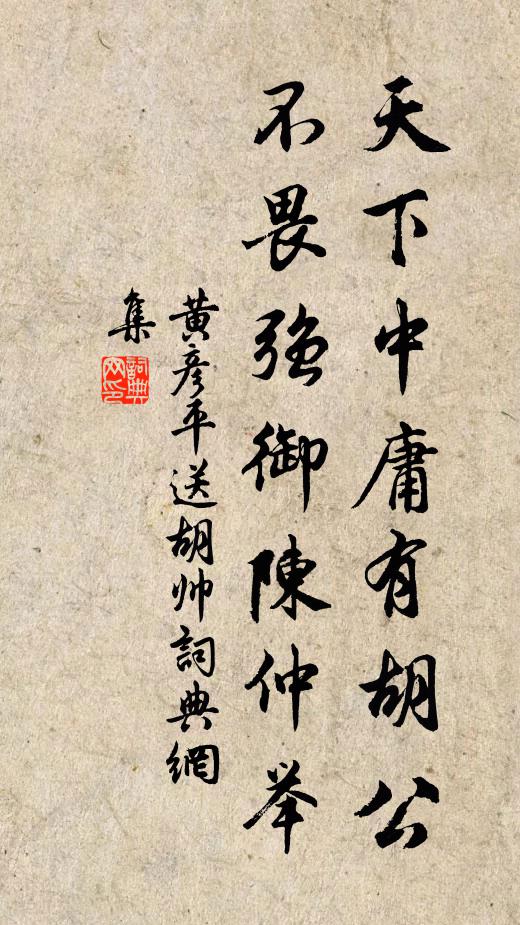 天下中庸有胡公
不畏强御陳仲举
黃彦平送胡帅詞典網
集
詞典网印